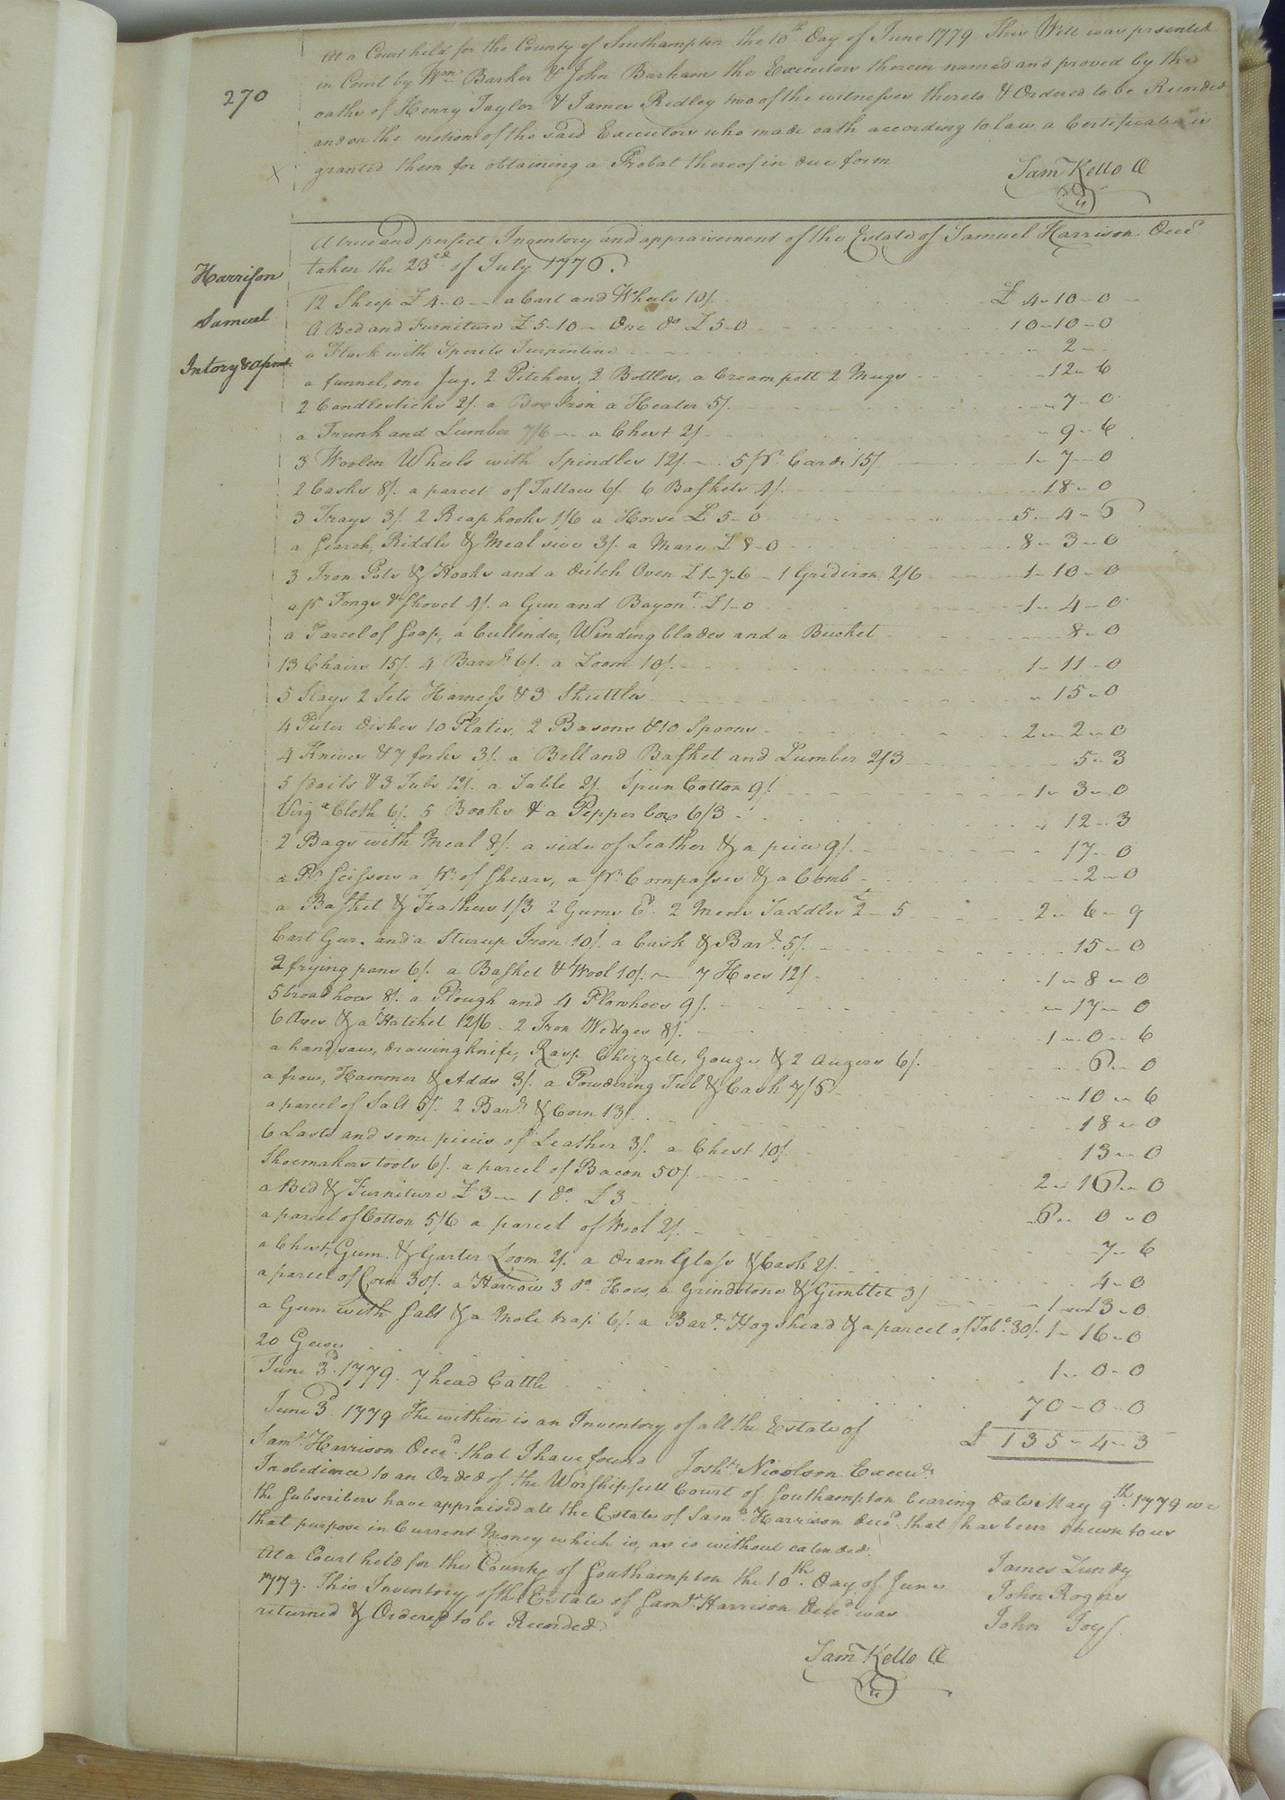 270
At a Court held for the County of Southampton the 10th Day of June 1779 This Will was presented
in Court by Wm. Barker & John Barham the Executors therein named and proved by the
oaths of Henry Taylor & James Ridley two of the witnesses thereto & Ordered to be Recorded
and on the motion of the said Executors who made oath according to law a Certificate is
granted them for obtaining a Probat thereof in due form
Sam Kello Cl
Harrison
Samuel
Intory & apmt.
A true and perfect Inventory and appraisement of the Estate of Samuel Harrison Decd
taken the 23rd of July 1776.
12 Sheep £4-0 - a Cart and Wheels 10/. £ 4-10-0
A Bed and Furniture £5-10 - One Do £5-0 10-10-0
a Flask with Sperets Turpentine 2-
a funnel, one Jug, 2 Pitchers, 2 Bottles, a Cream pott 2 Mugs 12-6
2 Candlesticks 2/. a Box Iron a Heater 5/. 7-0
a Trunk and Lumber 7/6 - a Chest 2/. 9-6
3 Woolen Wheels with Spindles 12/. - 5 pr. Cards 15/ 1-7-0
2 Casks 8/. a parcel of Tallow 6/. 6 Baskets 4/. 18-0
3 Trays 3/. 2 Reap hooks 1/6 a Horse £5-0 5-4-6
a Search, Riddle & Meal sive 3/. a Mare £8-0 8-3-0
3 Iron Pots & Hooks and a Dutch Oven £1-7-6 - 1 Gridiron 2/6 1-10-0
a pr Tongs & Shovel 4/. a Gun and Bayont. £1-0 1-4-0
a Parcel of Soap, a Cullinder, Winding blades and a Bucket 8-0
13 Chairs 15/. 4 Barrs. 6/. a Loom 10/. 1-11-0
5 Slays 2 Sets Harness & 3 Shuttles 15-0
4 Puter dishes 10 Plates, 2 Basons & 10 Spoons 2-2-0
4 Knives & 7 forks 3/. a Bell and Basket and Lumber 2/3 5-3
5 Pails & 3 Tubs 12/. a Table 2/. Spun Cotton 9/. 1-3-0
Virga Cloth 6/. 5 Books & a Pepper box 6/3 12-3
2 Bags with Meal 8/. a side of Leather & a piece 9/. 17-0
a Pr. Scissors a pr. of Shears, a pr. Compasses & a Comb 2-0
a Basket & Feathers 1/3 2 Gums &c. 2 Mens Saddles 2-5 2-6-9
Cart Gur. and a Stirrup Iron 10/. a Cask & Barl. 5/. 15-0
2 frying pans 6/. a Basket & Wool 10/. - 7 Hoes 12/. 1-8-0
5 broad hoes 8/. a Plough and 4 Plowhoes 9/. 17-0
6 Axes & a Hatchet 12/6 - 2 Iron Wedges 8/. 1-0-6
a hand saw, drawing knife, Rasp Chizzele, Gouge & 2 Augers 6/. 6-0
a frow, Hammer & Adds 3/. a Powdering Tub & Cask 7/6 10-6
a parcel of Salt 5/. 2 Barls. & Corn 13/. 18-0
6 Lasts and some pieces of Leather 3/. a Chest 10/. 13-0
Shoemakers tools 6/. a parcel of Bacon 50/. 2-16-0
a Bed & Furniture £3 - 1 Do. £3 6-0-0
a parcel of Cotton 5/6 a parcel of Wool 2/. 7-6
a Chest, Gum & Garter Loom 2/. a dram Glass & Cask 2/. 4-0
a parcel of Corn 30/. a Harrow 3 Do. Hoes, a Grindstone & Gimblet 3/ 1-13-0
a Gum with Salt & a Mole trap 6/. a Barl. Hogshead & a parcel of Tobo. 30/. 1-16-0
20 Geese 1-0-0
June 3d. 1779. 7 head Cattle 70-0-0
£ 135-4-3
June 3d 1779 The within is an Inventory of all the Estate of
Saml. Harrison Decd. that I have found Josha. Nicolson Execur.
In obedience to an Order of the Worshipfull Court of Southampton bearing date May 9th. 1779 we
the Subscribers have appraised all the Estate of Saml. Harrison decd. that has been shewn to us
that purpose in Current Money which is, as is without extended.
James Lundy
John Rogers
John Joys.
At a Court held for the County of Southampton the 10th. Day of June
1779. This Inventory of the Estate of Saml. Harrison Decd. was
returned & Ordered to be Recorded
Sam Kello Cl